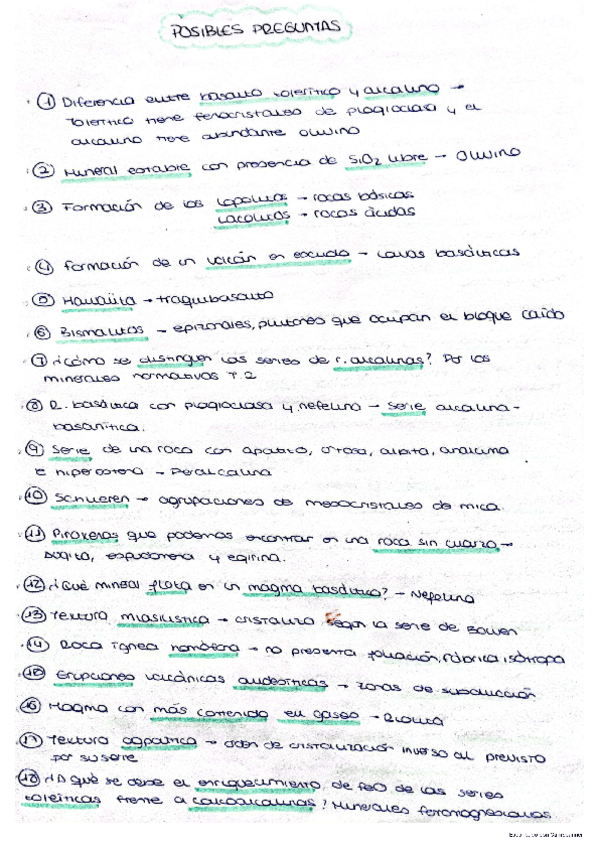 POSIBLES PREGUNTAS
① Diferencia entre basalto toleítico y alcalino →
Toleítico tiene fenocristales de plagioclasa y el
alcalino tiene abundante olivino
② Mineral estable con presencia de SiO2 libre → Olivino
③ Formación de los lopolitos → rocas básicas
lacolitos → rocas ácidas
④ formación de un volcán en escudo → lavas basálticas
⑤ Hawaiita → traquibasalto
⑥ Bismalitos → epizonales, plutones que ocupan el bloque caído
⑦ ¿Cómo se distinguen las series de r. alcalinas? Por los
minerales normativos T.2
⑧ R. basáltica con plagioclasa y nefelina → serie alcalina-
basanítica.
⑨ Serie de una roca con apatito, ortosa, albita, analcima
e hiperstena → Peralcalina
⑩ Schlieren → agrupaciones de mesocristales de mica.
⑪ Piroxenos que podemos encontrar en una roca sin cuarzo →
augita, espudomena y egirina.
⑫ ¿Qué mineral flota en un magma basáltico? → Nefelina
⑬ Textura miasiística → cristaliza según la serie de Bowen
⑭ Roca ígnea homófona → no presenta foliación, fábrica isótropa
⑮ Erupciones volcánicas andesíticas → zonas de subducción
⑯ Magma con más contenido en gases → Riolita
⑰ Textura agpaítica → orden de cristalización inverso al previsto
por su serie
⑱ ¿A qué se debe el enriquecimiento de FeO de las series
toleíticas frente a calcoalcalinas? Minerales ferromagnesianos